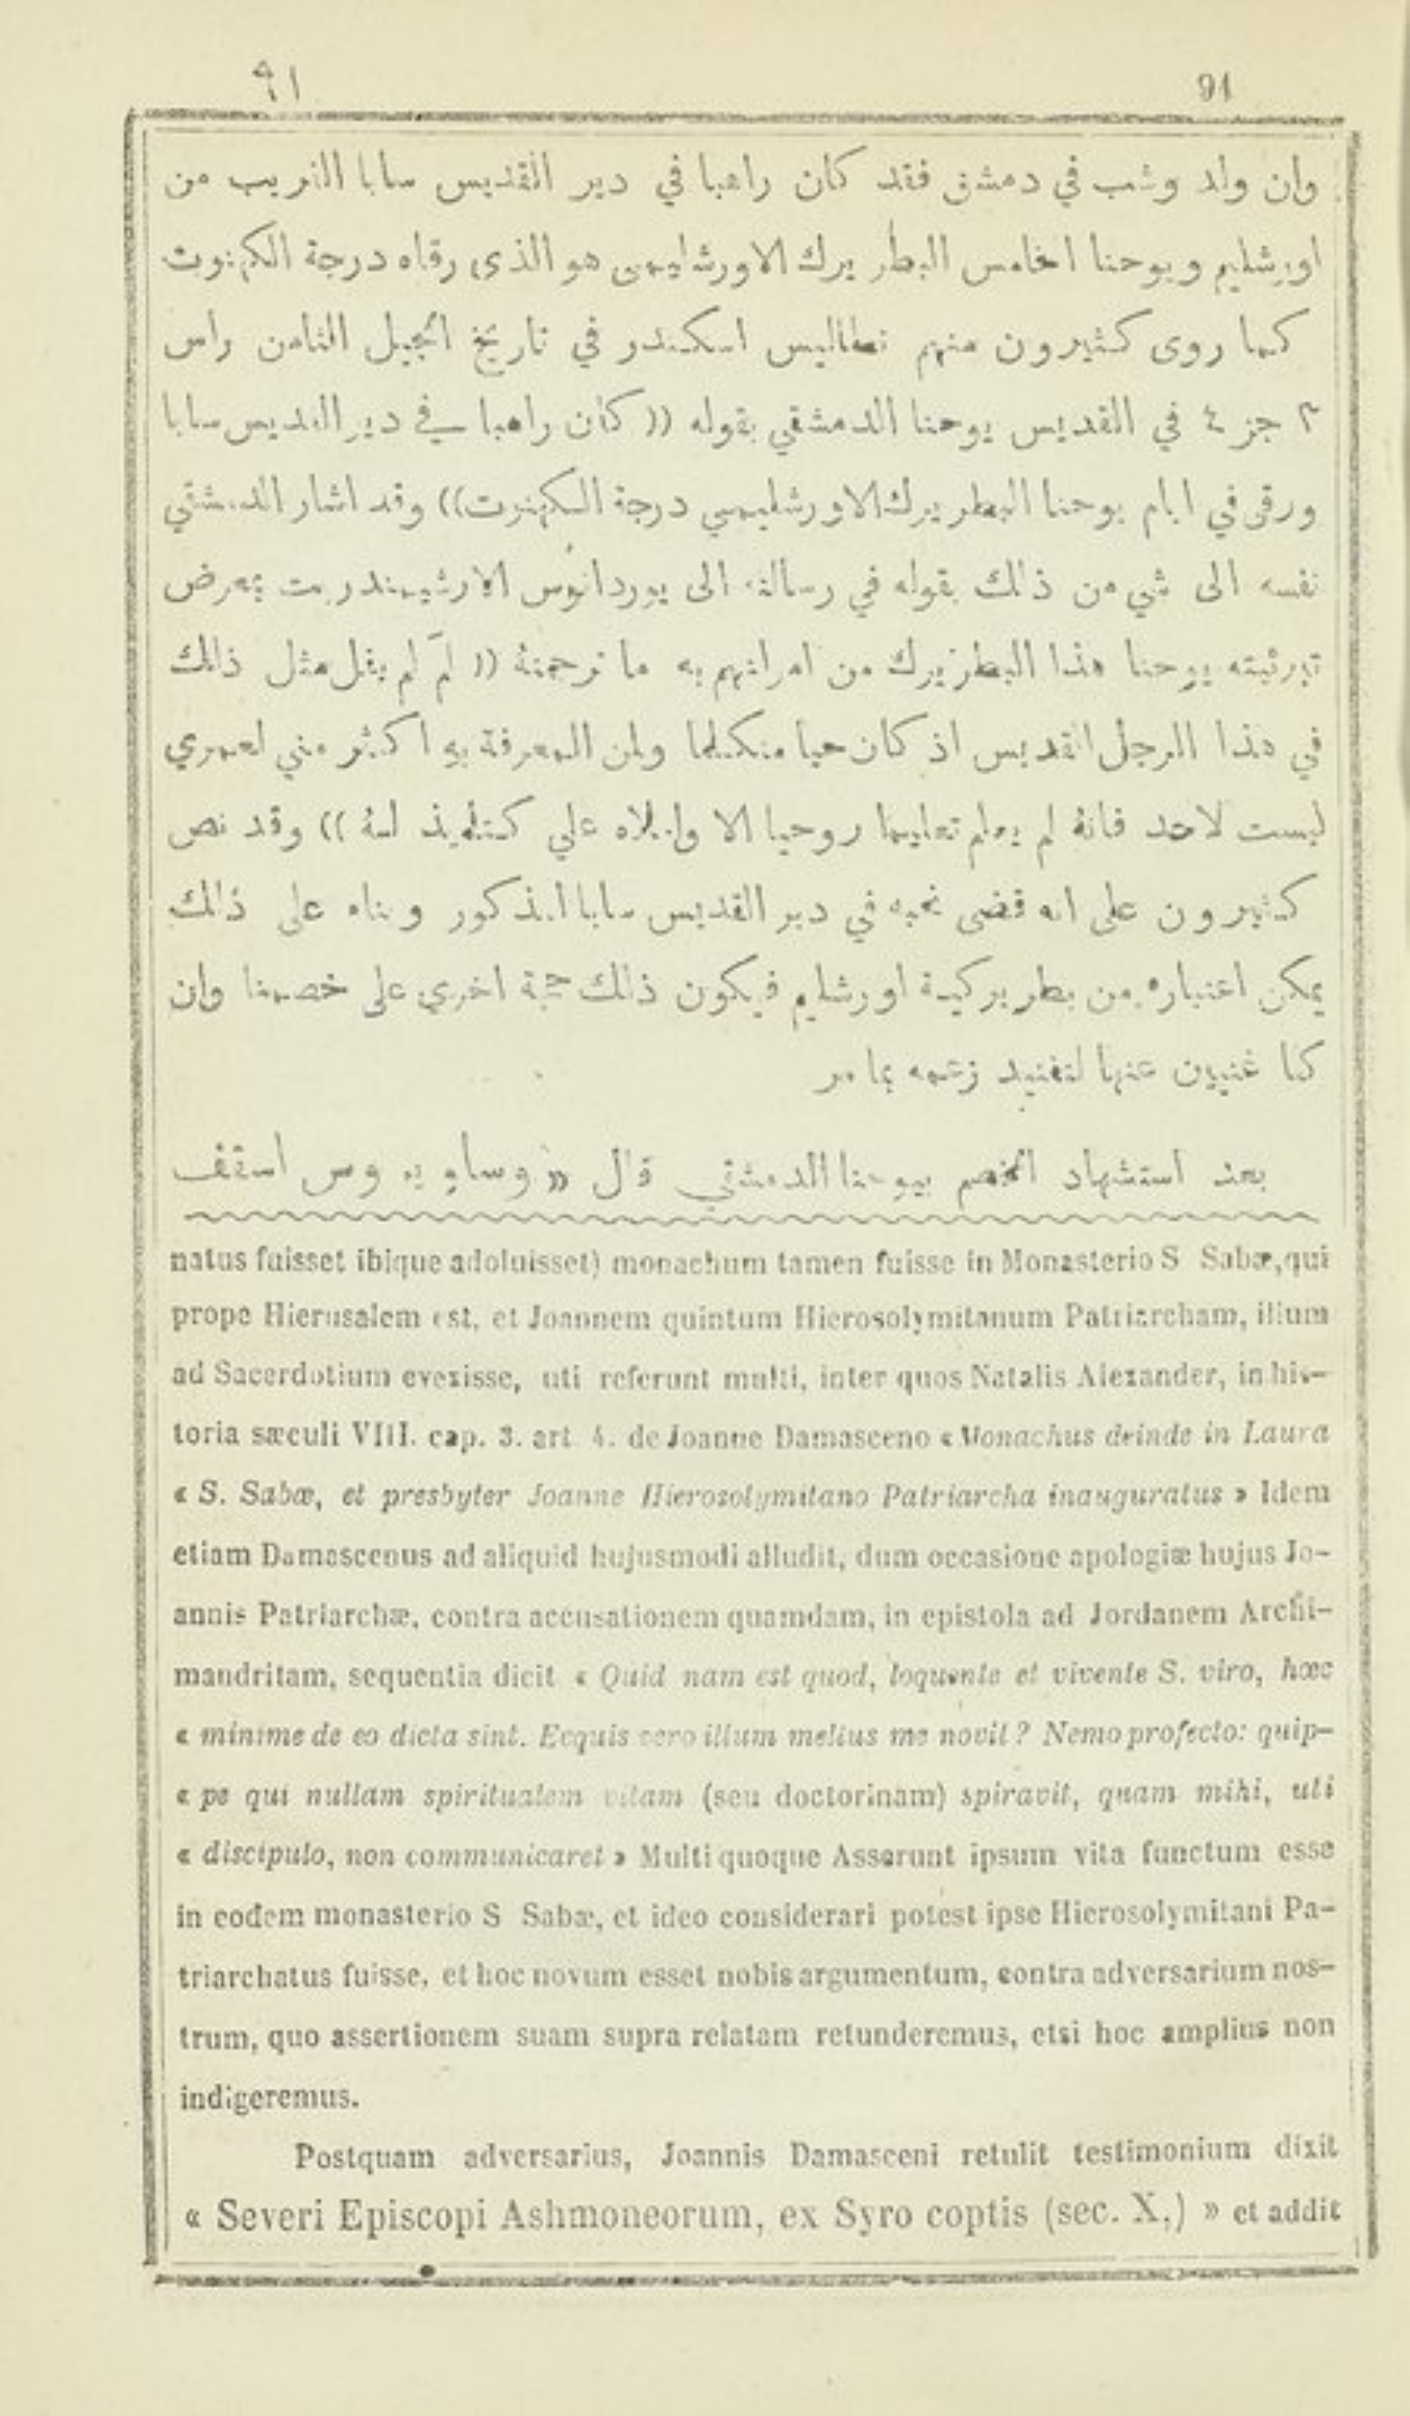 ٩١ 91
وان ولد وشب في دمشق فقد كان راهبا في دير القديس سابا القريب من
اورشليم ويوحنا الخامس البطريرك الاورشليمى هو الذى رقاه درجة الكهنوت
كما روى كثيرون منهم نطاليس اسكندر في تاريخ الجيل الثامن راس
٣ جز ٤ في القديس يوحنا الدمشقي بقوله (( كان راهبا في دير القديس سابا
ورقى في ايام يوحنا البطريرك الاورشليمي درجة الكهنوت)) وقد اشار الدمشقي
نفسه الى شي من ذلك بقوله في رسالته الى يوردانوس الارشيمندريت بمعرض
تبرئيته يوحنا هذا البطريرك من امر اتهم به ما ترجمتهُ (( لمَ لم يقل مثل ذلك
في هذا الرجل القديس اذ كان حيا متكلما ولمن المعرفة به اكثر مني لعمري
ليست لاحد فانهُ لم يعلم تعليما روحيا الا واملاه علي كتلميذ لهُ )) وقد نص
كثيرون على انه قضى نحبه في دير القديس سابا المذكور وبناه على ذلك
يمكن اعتباره من بطريركية اورشليم فيكون ذلك حجة اخرى على خصمنا وان
كنا غنيين عنها لتفنيد زعمه بما مر
بعد استشهاد الخصم بيوحنا الدمشقي قال « وساويروس اسقف
natus fuisset ibique adoluisset) monachum tamen fuisse in Monasterio S Sabæ, qui
prope Hierusalem est, et Joannem quintum Hierosolymitanum Patriarcham, illum
ad Sacerdotium evexisse, uti referunt multi, inter quos Natalis Alexander, in his-
toria sæculi VIII. cap. 3. art 4. de Joanne Damasceno « Monachus deinde in Laura
« S. Sabæ, et presbyter Joanne Hierosolymitano Patriarcha inauguratus » Idem
etiam Damascenus ad aliquid hujusmodi alludit, dum occasione apologiæ hujus Jo-
annis Patriarchæ, contra accusationem quamdam, in epistola ad Jordanem Archi-
mandritam, sequentia dicit « Quid nam est quod, loquente et vivente S. viro, hæc
« minime de eo dicta sint. Ecquis vero illum melius me novit ? Nemo profecto: quip-
« pe qui nullam spiritualem vitam (seu doctorinam) spiravit, quam mihi, uti
« discipulo, non communicaret » Multi quoque Asserunt ipsum vita functum esse
in eodem monasterio S Sabæ, et ideo considerari potest ipse Hierosolymitani Pa-
triarchatus fuisse, et hoc novum esset nobis argumentum, contra adversarium nos-
trum, quo assertionem suam supra relatam retunderemus, etsi hoc amplius non
indigeremus.
Postquam adversarius, Joannis Damasceni retulit testimonium dixit
« Severi Episcopi Ashmoneorum, ex Syro coptis (sec. X,) » et addit